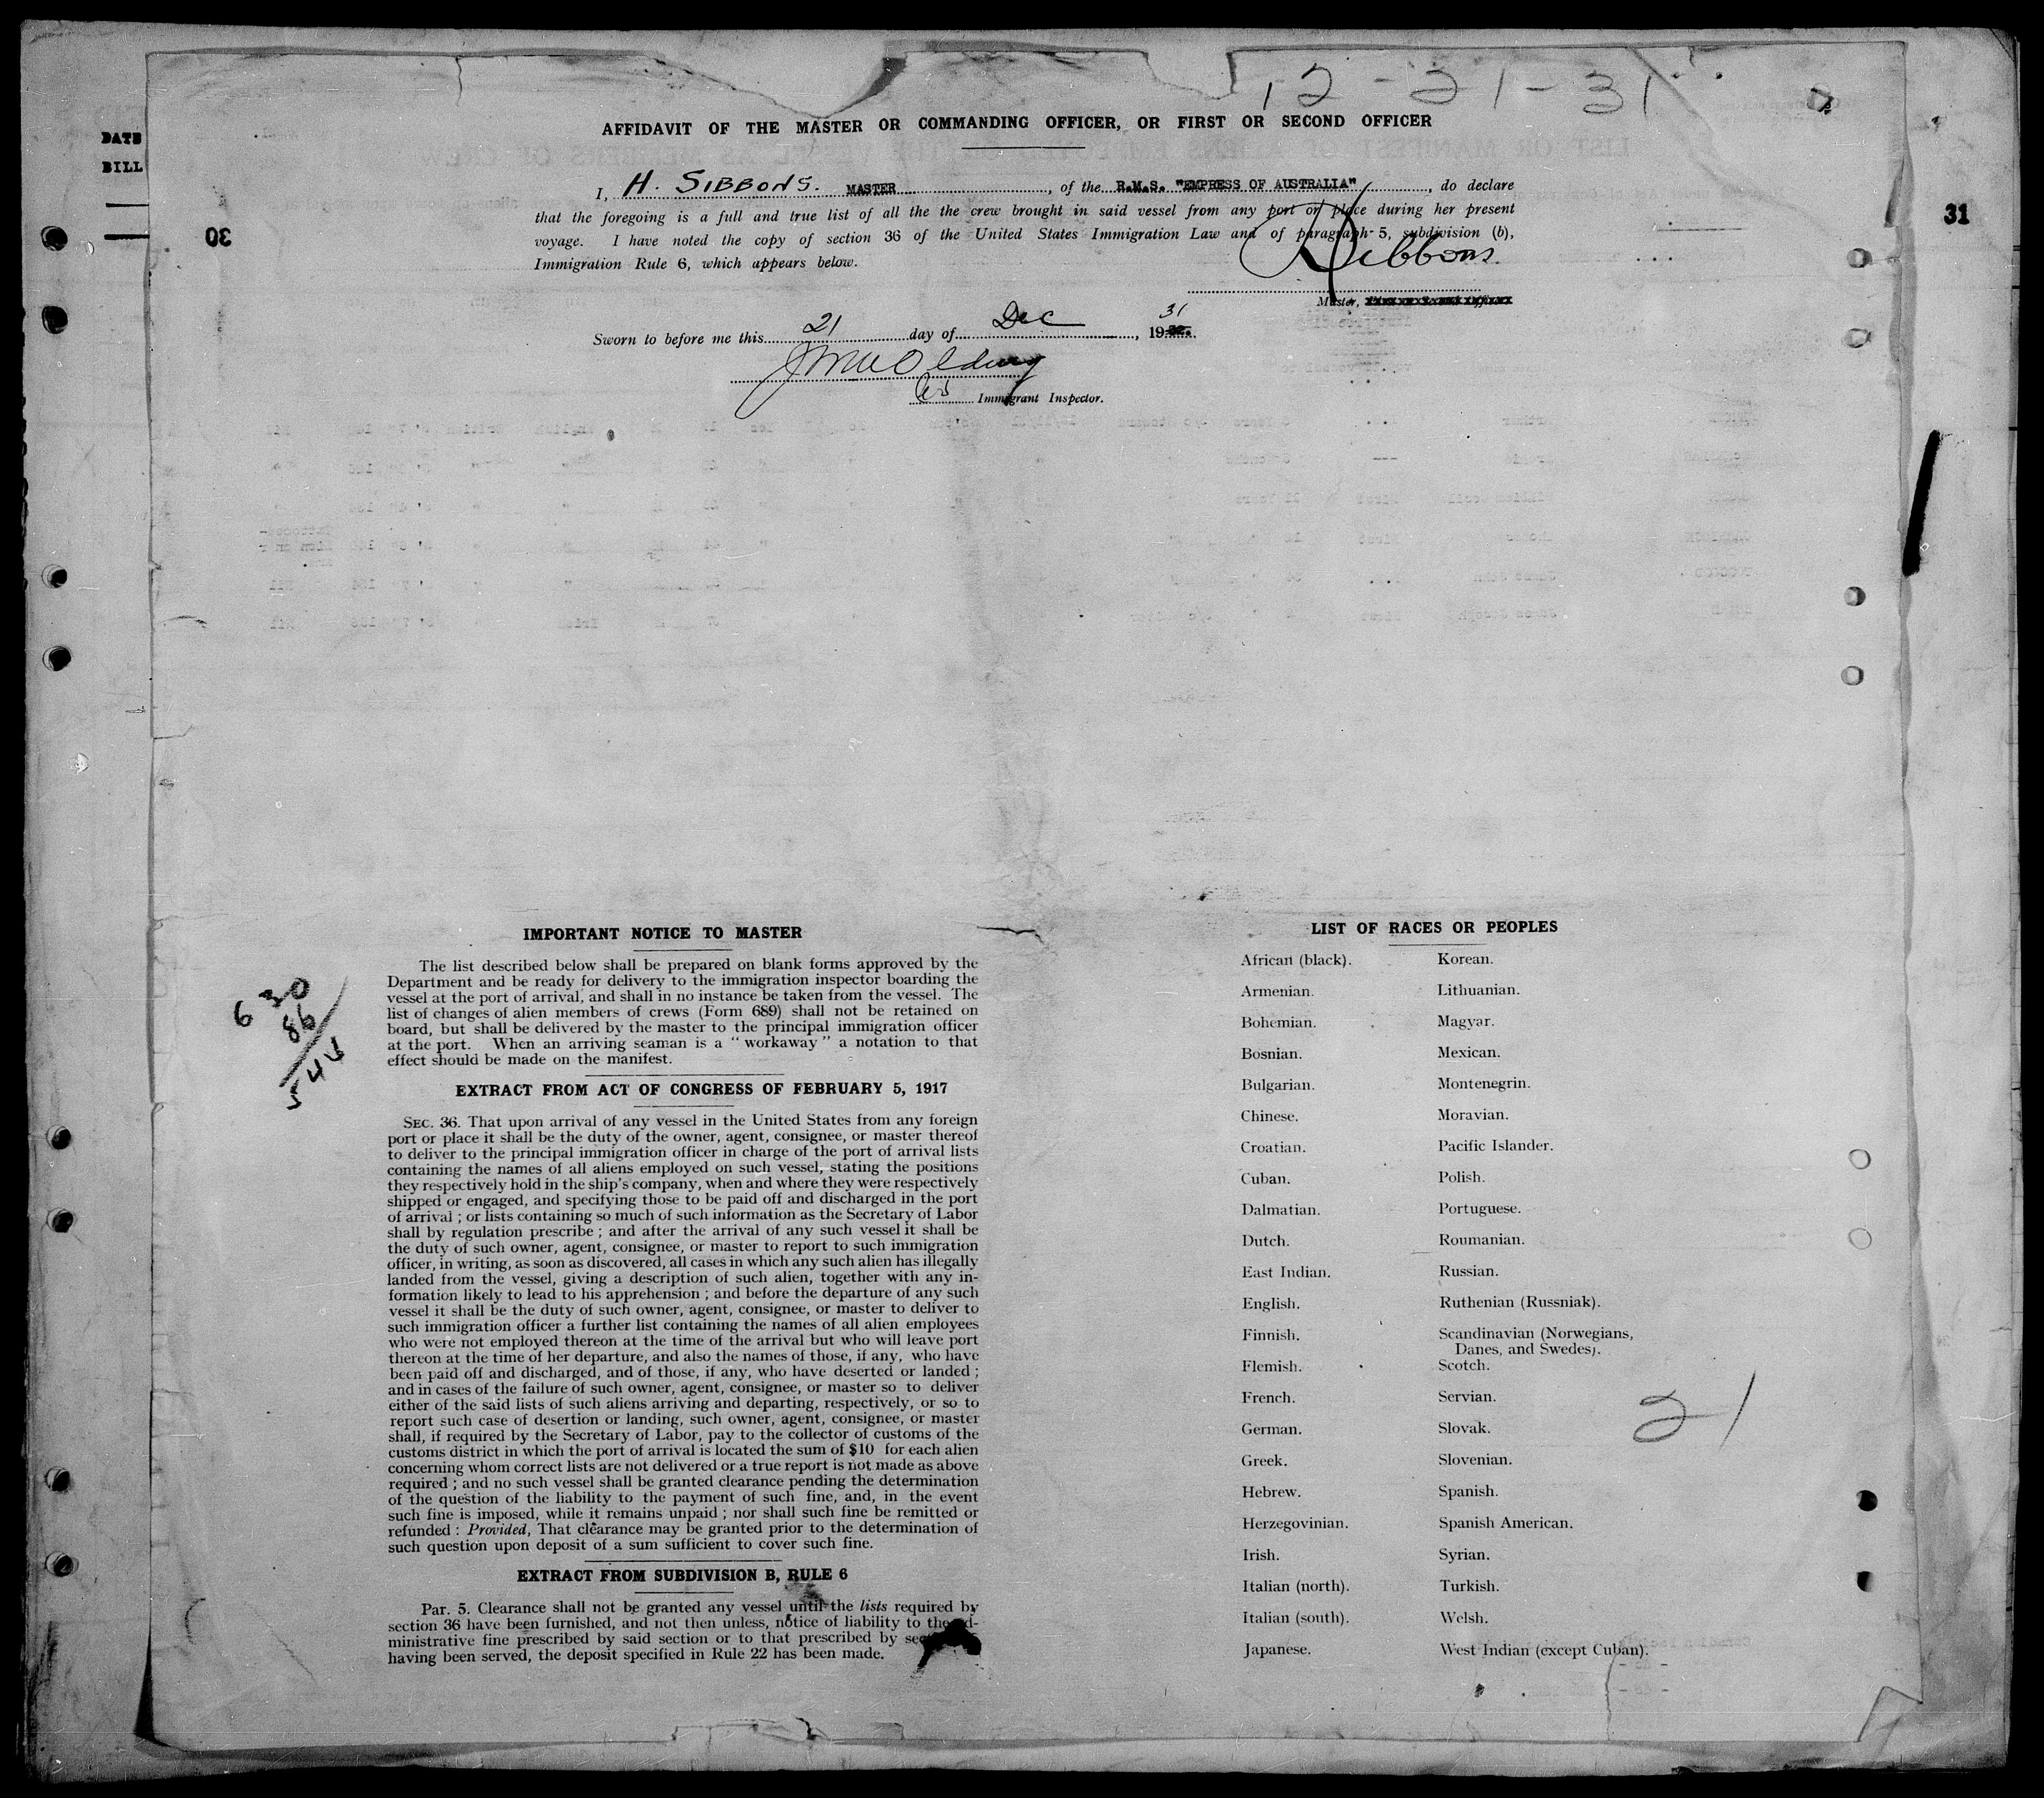 12-21-31
DATE
BILL
AFFIDAVIT OF THE MASTER OR COMMANDING OFFICER, OR FIRST OR SECOND OFFICER
I, H. SIBBONS. MASTER, of the R.M.S. "EMPRESS OF AUSTRALIA", do declare
that the foregoing is a full and true list of all the the crew brought in said vessel from any port or place during her present
voyage. I have noted the copy of section 36 of the United States Immigration Law and of paragraph 5, subdivision (b),
Immigration Rule 6, which appears below.
31
30
Sibbons.
Master,
Sworn to before me this 21 day of Dec, 19 31
Immigrant Inspector.
IMPORTANT NOTICE TO MASTER
The list described below shall be prepared on blank forms approved by the
Department and be ready for delivery to the immigration inspector boarding the
vessel at the port of arrival, and shall in no instance be taken from the vessel. The
list of changes of alien members of crews (Form 689) shall not be retained on
board, but shall be delivered by the master to the principal immigration officer
at the port. When an arriving seaman is a " workaway " a notation to that
effect should be made on the manifest.
630
86
544
EXTRACT FROM ACT OF CONGRESS OF FEBRUARY 5, 1917
SEC. 36. That upon arrival of any vessel in the United States from any foreign
port or place it shall be the duty of the owner, agent, consignee, or master thereof
to deliver to the principal immigration officer in charge of the port of arrival lists
containing the names of all aliens employed on such vessel, stating the positions
they respectively hold in the ship's company, when and where they were respectively
shipped or engaged, and specifying those to be paid off and discharged in the port
of arrival ; or lists containing so much of such information as the Secretary of Labor
shall by regulation prescribe ; and after the arrival of any such vessel it shall be
the duty of such owner, agent, consignee, or master to report to such immigration
officer, in writing, as soon as discovered, all cases in which any such alien has illegally
landed from the vessel, giving a description of such alien, together with any in-
formation likely to lead to his apprehension ; and before the departure of any such
vessel it shall be the duty of such owner, agent, consignee, or master to deliver to
such immigration officer a further list containing the names of all alien employees
who were not employed thereon at the time of the arrival but who will leave port
thereon at the time of her departure, and also the names of those, if any, who have
been paid off and discharged, and of those, if any, who have deserted or landed ;
and in cases of the failure of such owner, agent, consignee, or master so to deliver
either of the said lists of such aliens arriving and departing, respectively, or so to
report such case of desertion or landing, such owner, agent, consignee, or master
shall, if required by the Secretary of Labor, pay to the collector of customs of the
customs district in which the port of arrival is located the sum of $10 for each alien
concerning whom correct lists are not delivered or a true report is not made as above
required ; and no such vessel shall be granted clearance pending the determination
of the question of the liability to the payment of such fine, and, in the event
such fine is imposed, while it remains unpaid ; nor shall such fine be remitted or
refunded : Provided, That clearance may be granted prior to the determination of
such question upon deposit of a sum sufficient to cover such fine.
EXTRACT FROM SUBDIVISION B, RULE 6
Par. 5. Clearance shall not be granted any vessel until the lists required by
section 36 have been furnished, and not then unless, notice of liability to the ad-
ministrative fine prescribed by said section or to that prescribed by
having been served, the deposit specified in Rule 22 has been made.
LIST OF RACES OR PEOPLES
African (black).
Armenian.
Bohemian.
Bosnian.
Bulgarian.
Chinese.
Croatian.
Cuban.
Dalmatian.
Dutch.
East Indian.
English.
Finnish.
Flemish.
French.
German.
Greek.
Hebrew.
Herzegovinian.
Irish.
Italian (north).
Italian (south).
Japanese.
Korean.
Lithuanian.
Magyar.
Mexican.
Montenegrin.
Moravian.
Pacific Islander.
Polish.
Portuguese.
Roumanian.
Russian.
Ruthenian (Russniak).
Scandinavian (Norwegians,
Danes, and Swedes).
Scotch.
Servian.
Slovak.
Slovenian.
Spanish.
Spanish American.
Syrian.
Turkish.
Welsh.
West Indian (except Cuban).
21